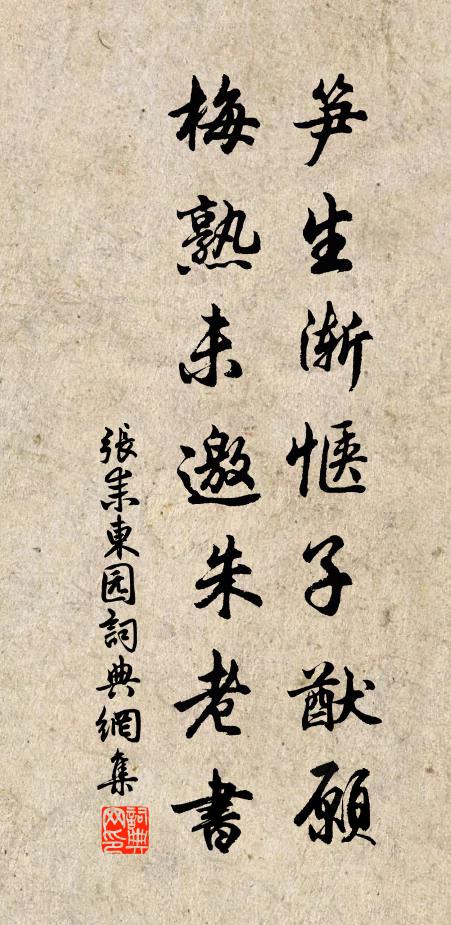 笋生渐惬子猷願
梅熟未邀朱老書
張耒東园詞典網集
詞典网印